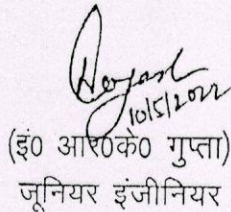 10/5/2022
(इं0 आर0के0 गुप्ता)
जूनियर इंजीनियर